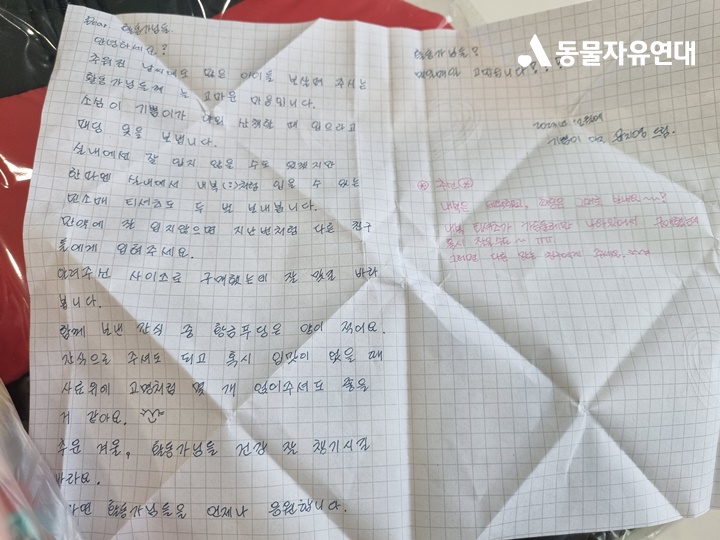 Dear. 활동가님들.
안녕하세요?
추위된 날씨에도 많은 아이를 보살펴 주시는
활동가님들께 늘 고마운 마음입니다.
소심이 기쁨이가 산책할 때 입으라고
패딩 옷을 보냅니다.
실내에선 잘 입지 않을 수도 있겠지만
한파엔 실내에서 내복(?)처럼 입을 수 있는
민소매 티셔츠도 두 벌 보내봅니다.
만약에 잘 입지않으면 지난번처럼 다른 친구
들에게 입혀주세요.
알려주신 사이즈로 구매했는데 잘 맞길 바라
봅니다.
함께 보낸 간식 중 황금푸딩은 양이 적어요.
간식으로 주셔도 되고 혹시 입맛이 없을 때
사료위에 고명처럼 몇 개 얹어주셔도 좋을
거 같아요.
추운 겨울, 활동가님들 건강 잘 챙기시길
바라요.
활동가님들을 언제나 응원합니다.
동물자유연대
활동가님들?
매일매일 고맙습니다
기쁨이 드림.
추신
내복은